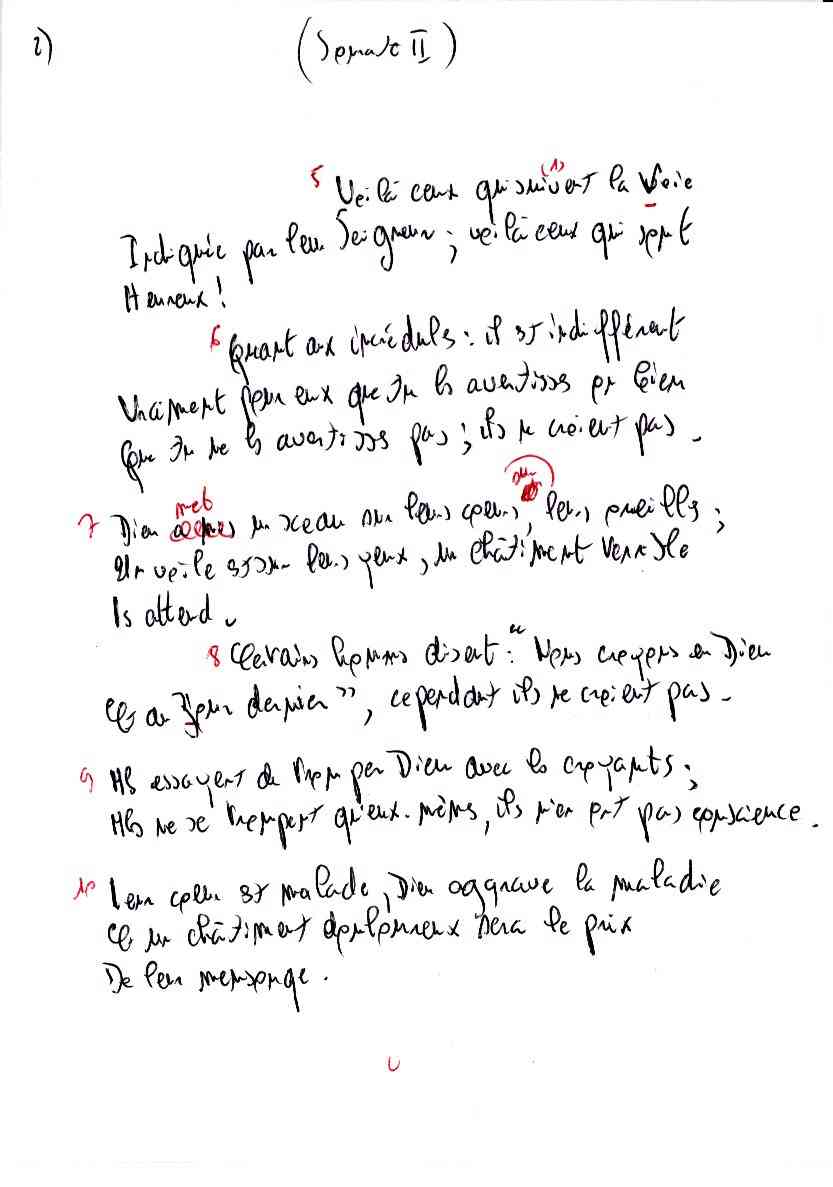 2)
(Sourate II)
5 Voilà ceux qui suivent (1) la Voie
Indiquée par leur Seigneur ; voilà ceux qui sont
Heureux !
6 Quant aux incrédules : il est indifférent
Vraiment pour eux que tu les avertisses ou bien
Que tu ne les avertisses pas ; ils ne croient pas .
met
sur
7 Dieu un sceau sur leurs coeurs, leurs oreilles ;
Un voile est sur leurs yeux, un châtiment terrible
les attend .
8 Certains hommes disent : " Nous croyons en Dieu
Et au Jour dernier ", cependant ils ne croient pas .
9 Ils essayent de tromper Dieu avec les croyants ;
Ils ne se trompent qu'eux-mêmes, ils n'en ont pas conscience .
10 leur coeur est malade, Dieu aggrave la maladie
Et un châtiment douloureux sera le prix
De leur mensonge .